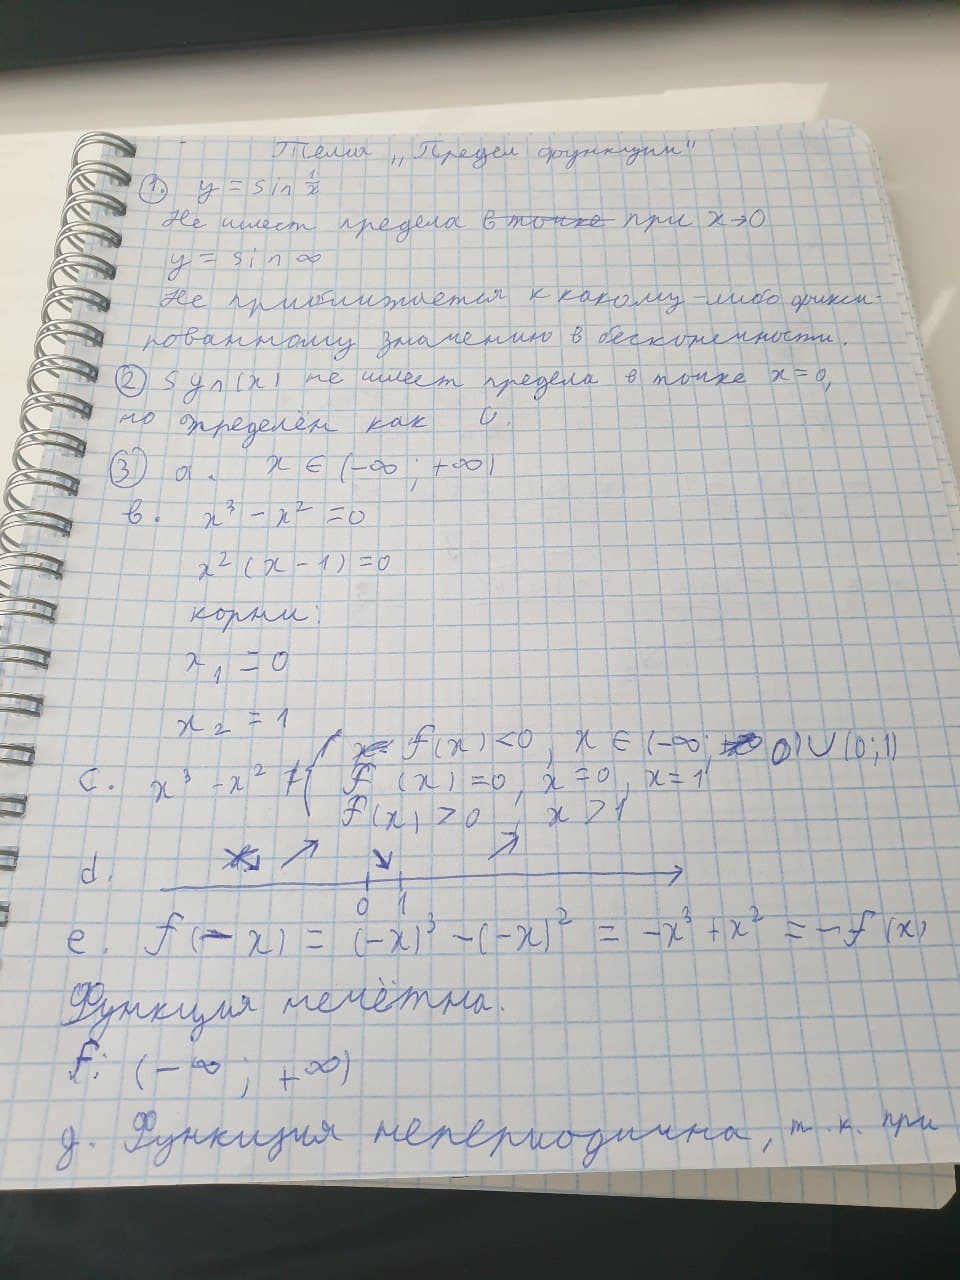 Тема „Предел функции"
1. y = sin 1/x
Не имеет предела в точке при x→0
y = sin ∞
Не приближается к какому-либо фикси-
рованному значению в бесконечности.
2 sgn(x) не имеет предела в точке x=0,
но определён как 0.
3 a. x ∈ (-∞; +∞)
b. x³ - x² = 0
x²(x-1)=0
корни:
x₁ = 0
x₂ = 1
f(x)<0, x ∈ (-∞; 0)∪(0;1)
c. x³ - x² { f(x)=0, x=0, x=1
f(x)>0, x>1
d. ↗ ↘ ↗
0 1
e. f(-x) = (-x)³ - (-x)² = -x³ + x² = -f(x)
Функция нечётна.
f: (-∞; +∞)
g. Функция непериодична, т.к. при